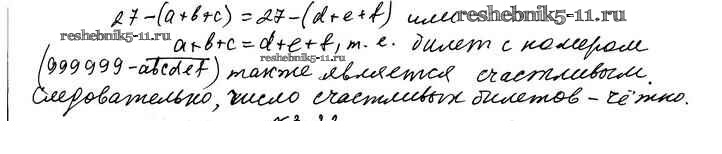 27-(a+b+c)=27-(d+e+f) или
reshebnik5-11.ru
reshebnik5-11.ru
a+b+c=d+e+f, т.е. билет с номером
reshebnik5-11.ru
(999999-abcdef) также является счастливым.
Следовательно, число счастливых билетов - чётно.